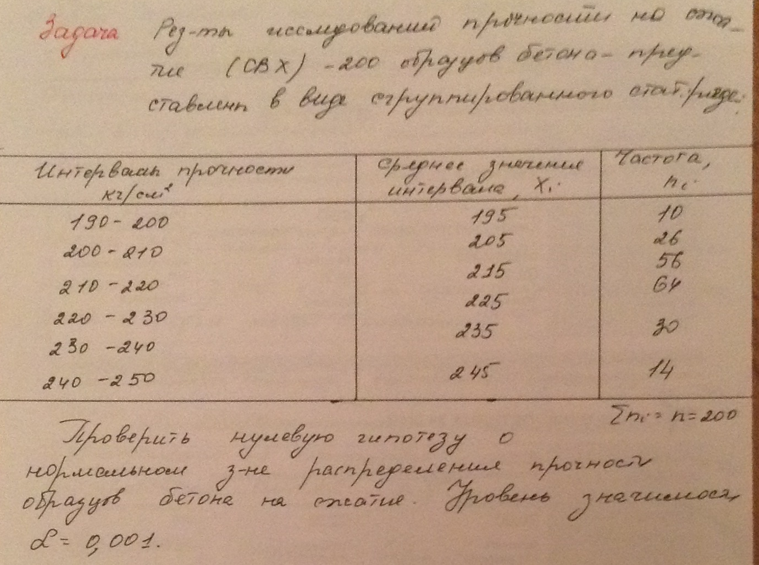 Задача Рез-ты исследований прочности на сжа-
тие (СВХ) - 200 образцов бетона - пред-
ставлены в виде сгруппированного стат. ряда:
Интервалы прочности кг/см² среднее значение интервала, Xi Частота, ni
190 - 200 195 10
200 - 210 205 26
210 - 220 215 56
220 - 230 225 64
230 - 240 235 30
240 - 250 245 14
Σni = n = 200
Проверить нулевую гипотезу о
нормальном з-не распределения прочности
образцов бетона на сжатие. Уровень значимости
α = 0,001.